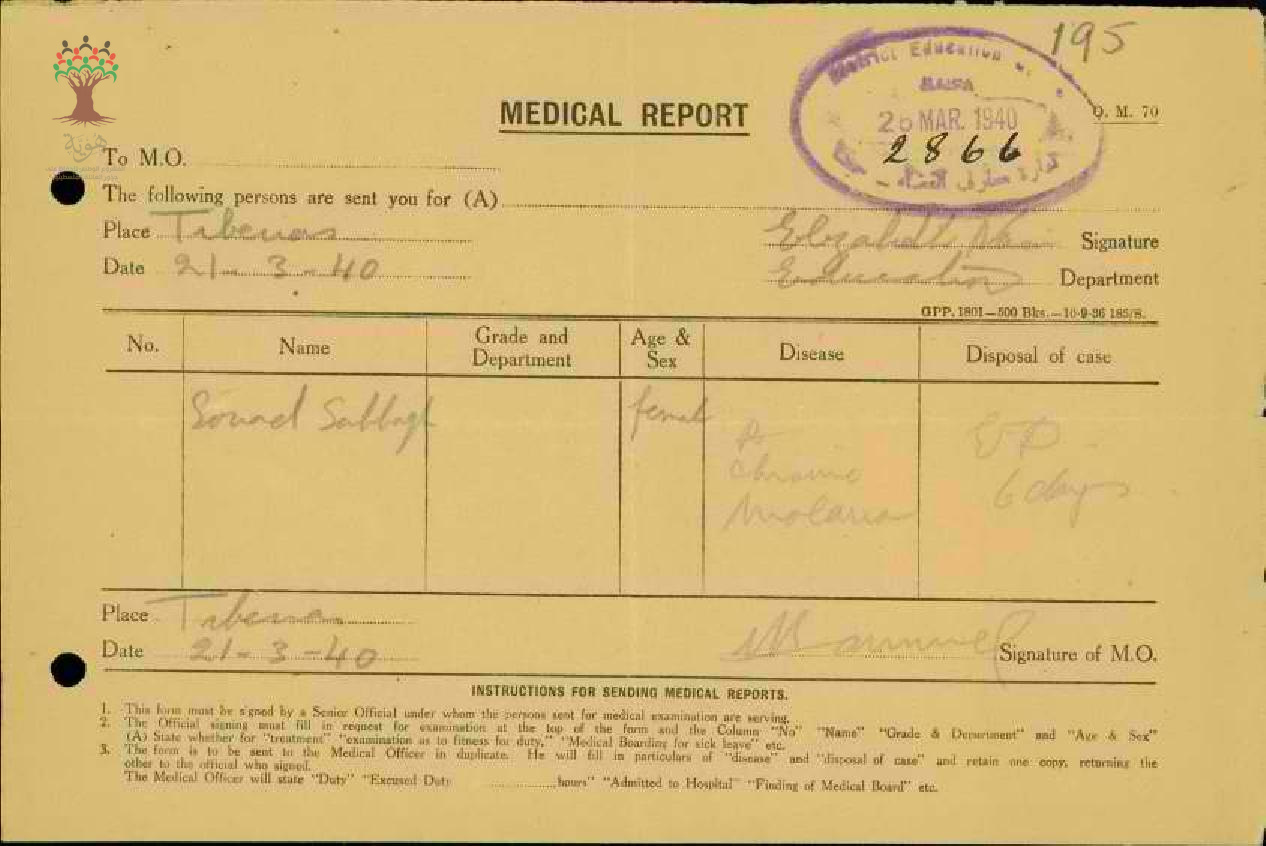 195
District Education
HAIFA
O. M. 70
26 MAR. 1940
2866
MEDICAL REPORT
To M.O.
The following persons are sent you for (A)
Place Tiberias
Date 21-3-40
Elizabeth Signature
Education Department
GPP. 1801—500 Bks.—10-9-36 185/S.
No. Name Grade and Department Age & Sex Disease Disposal of case
Souad Sabbagh female
Chronic Malaria
6 days
Place Tiberias
Date 21-3-40
Signature of M.O.
INSTRUCTIONS FOR SENDING MEDICAL REPORTS.
1. This form must be signed by a Senior Official under whom the persons sent for medical examination are serving.
2. The Official signing must fill in request for examination at the top of the form and the Column "No" "Name" "Grade & Department" and "Age & Sex"
(A) State whether for "treatment" "examination as to fitness for duty," "Medical Boarding for sick leave" etc.
3. The form is to be sent to the Medical Officer in duplicate. He will fill in particulars of "disease" and "disposal of case" and retain one copy, returning the
other to the official who signed.
The Medical Officer will state "Duty" "Excused Duty ..............hours" "Admitted to Hospital" "Finding of Medical Board" etc.